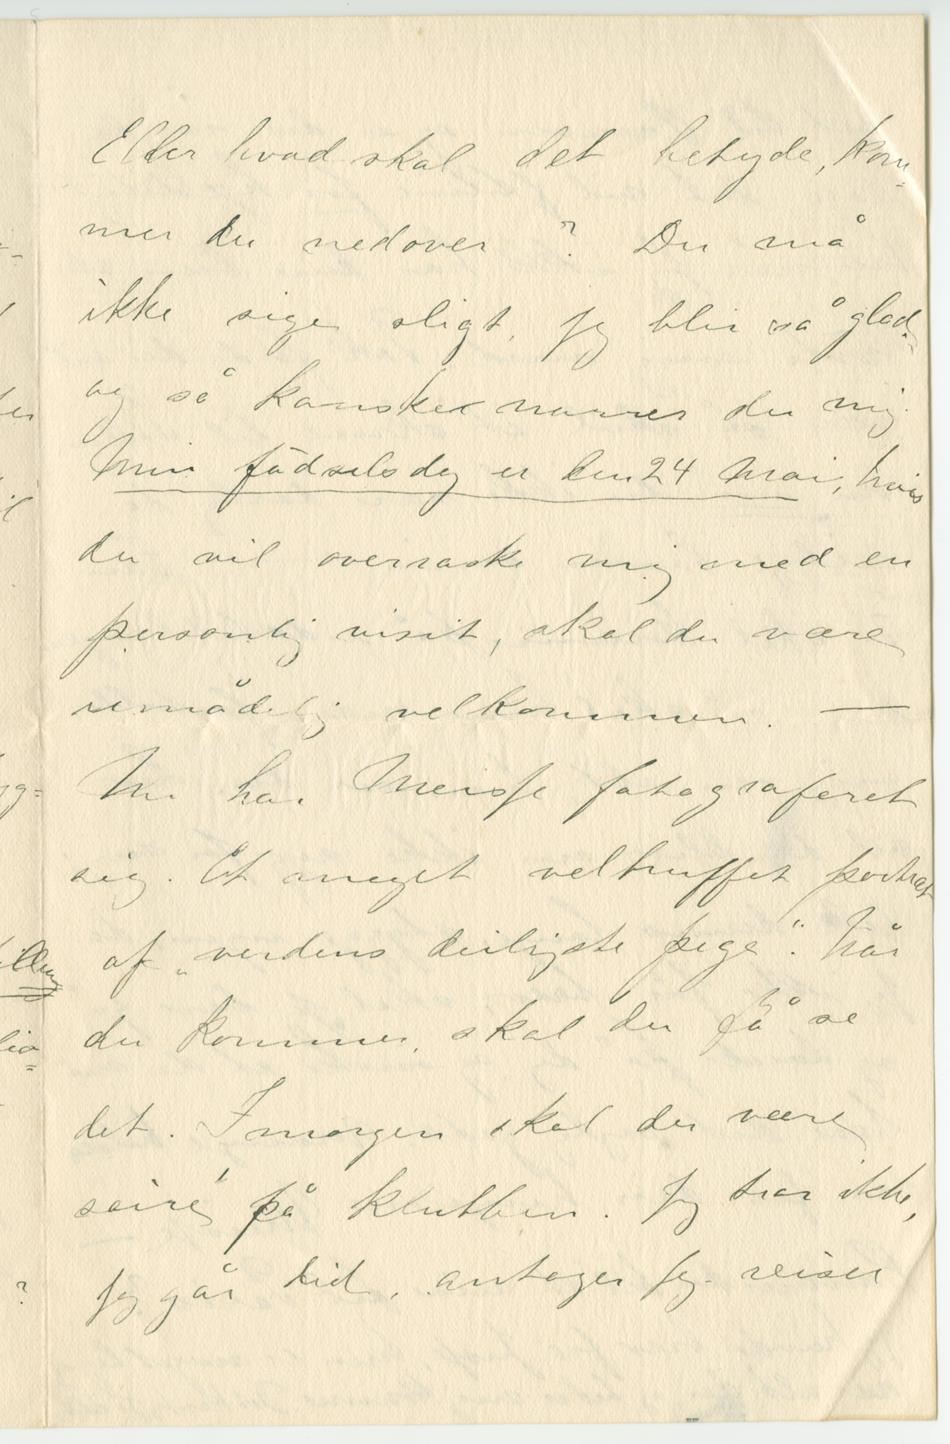 Eller hvad skal det betyde, kom-
mer du nedover? Du må
ikke sige sligt, jeg blir så glad,
og så kanske narrer du mig.
Min fødselsdag er den 24 Mai, hvis
du vil overraske mig med en
personlig visit, skal du være
umådelig velkommen. —
Nu har Meisse fotograferet
sig. Et meget veltruffet portræt
af „verdens deiligste pige“. Når
du kommer, skal du få se
det. Imorgen skal der være
soiré på klubben. Jeg tror ikke,
jeg går did, antager jeg reiser